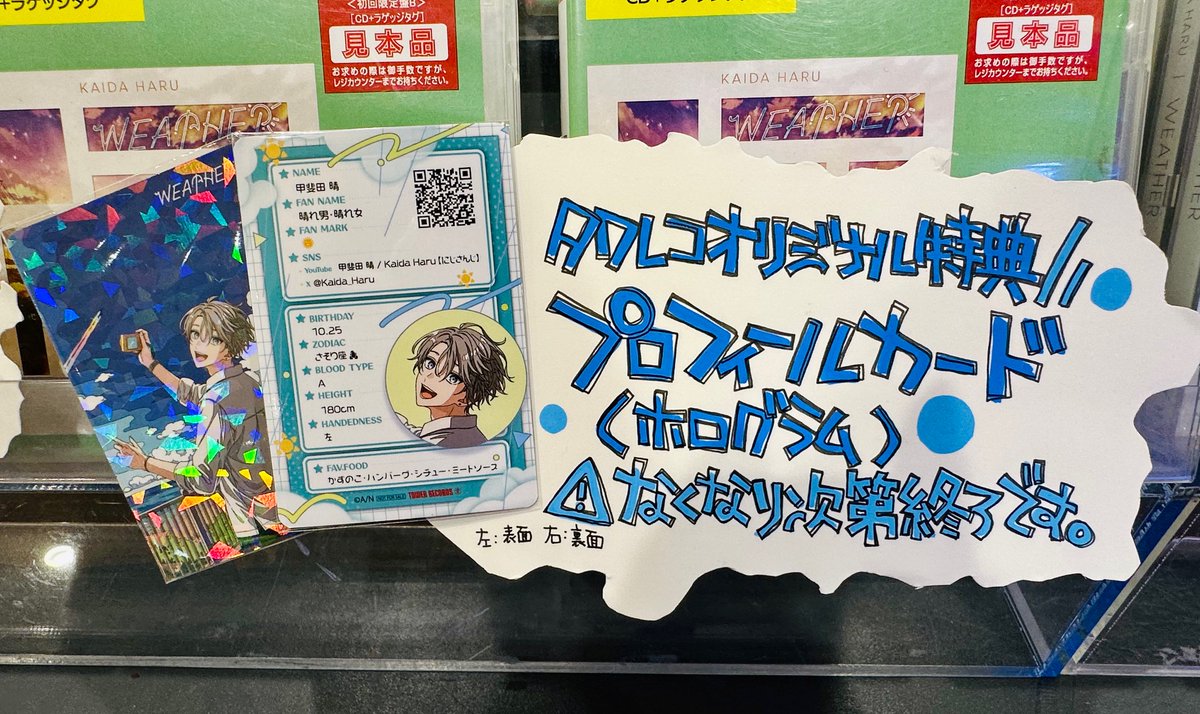 <初回限定盤B>
[CD+ラゲッジタグ]
見本品
お求めの際は御手数ですが、
レジカウンターまでお持ちください。
KAIDA HARU
WEATHER
[CD+ラゲッジタグ]
見本品
お求めの際は御手数ですが、
レジカウンターまでお持ちください。
KAIDA HARU
WEATHER
WEATHER
WEATHER
NAME
甲斐田 晴
FAN NAME
晴れ男・晴れ女
FAN MARK
SNS
- YouTube 甲斐田 晴 / Kaida Haru【にじさんじ】
- X @Kaida_Haru
BIRTHDAY
10.25
ZODIAC
さそり座
BLOOD TYPE
A
HEIGHT
180cm
HANDEDNESS
左
FAV.FOOD
かずのこ・ハンバーグ・シチュー・ミートソース
©A/N TOWER RECORDS
タワレコオリジナル特典//
プロフィールカード
(ホログラム)
⚠なくなり次第終了です。
左:表面 右:裏面